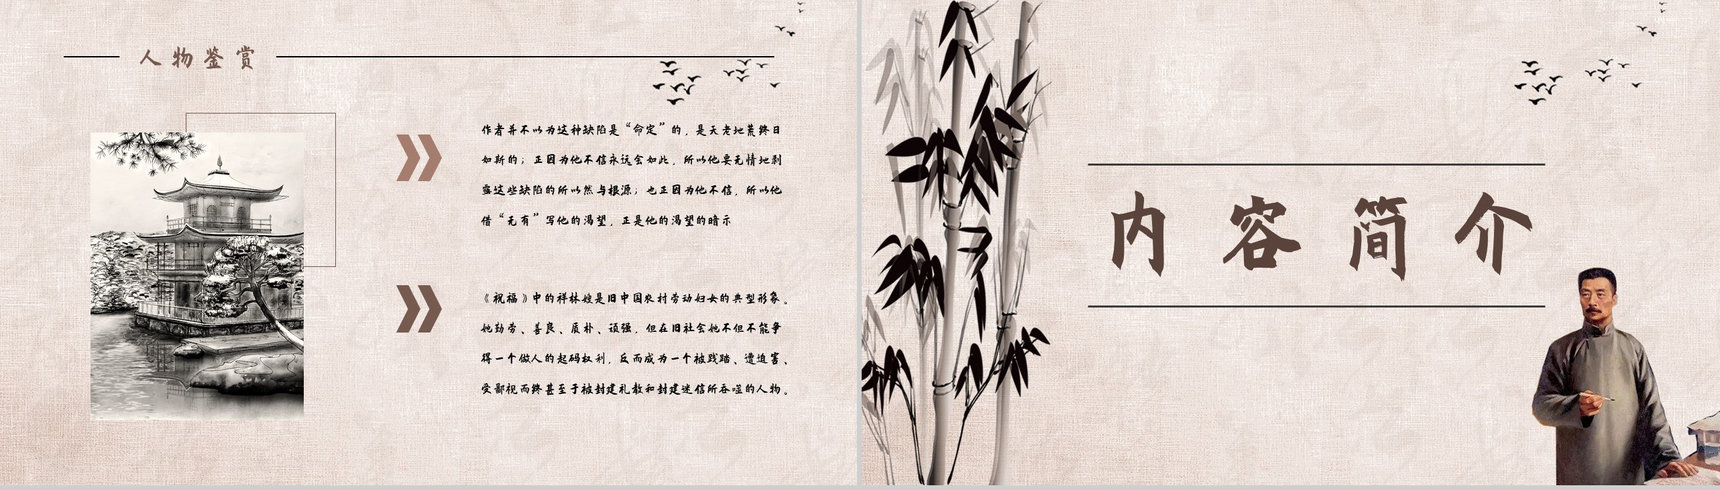 人物鉴赏
作者并不以为这种缺陷是“命定”的，是天老地荒终日
如斯的；正因为他不信永远会如此，所以他要无情地剥
露这些缺陷的所以然与根源；也正因为他不信，所以他
借“无有”写他的渴望，正是他的渴望的暗示
《祝福》中的祥林嫂是旧中国农村劳动妇女的典型形象。
她勤劳、善良、质朴、顽强，但在旧社会她不但不能争
得一个做人的起码权利，反而成为一个被践踏、遭迫害、
受鄙视而终甚至于被封建礼教和封建迷信所吞噬的人物。
内容简介